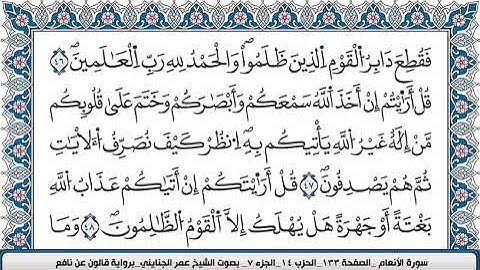 فَقُطِعَ دَابِرُ الْقَوْمِ الذِينَ ظَلَمُواْ وَالْحَمْدُ لِلهِ رَبِّ الْعَٰلَمِينَ ٤٦
قُلَ اَرَٰٓيْتُمُ إِنْ أَخَذَ اَللَّهُ سَمْعَكُمْ وَأَبْصَٰرَكُمْ وَخَتَمَ عَلَىٰ قُلُوبِكُم
مَّنِ اِلَٰهٌ غَيْرُ اللَّهِ يَأْتِيكُم بِهِ اِنظُرْ كَيْفَ نُصَرِّفُ الَايَٰتِ
ثُمَّ هُمْ يَصْدِفُونَ ٤٧ قُلَ اَرَٰٓيْتَكُمُ إِنْ أَتَيٰكُمْ عَذَابُ اللَّهِ
بَغْتَةً أَوْ جَهْرَةً هَلْ يُهْلَكُ إِلَّا اَلْقَوْمُ الظَّٰلِمُونَ ٤٨ وَمَا
سورة الأنعام _الصفحة ١٣٣_الحزب ١٤_الجزء ٧_ بصوت الشيخ عمر الجنايني_برواية قالون عن نافع